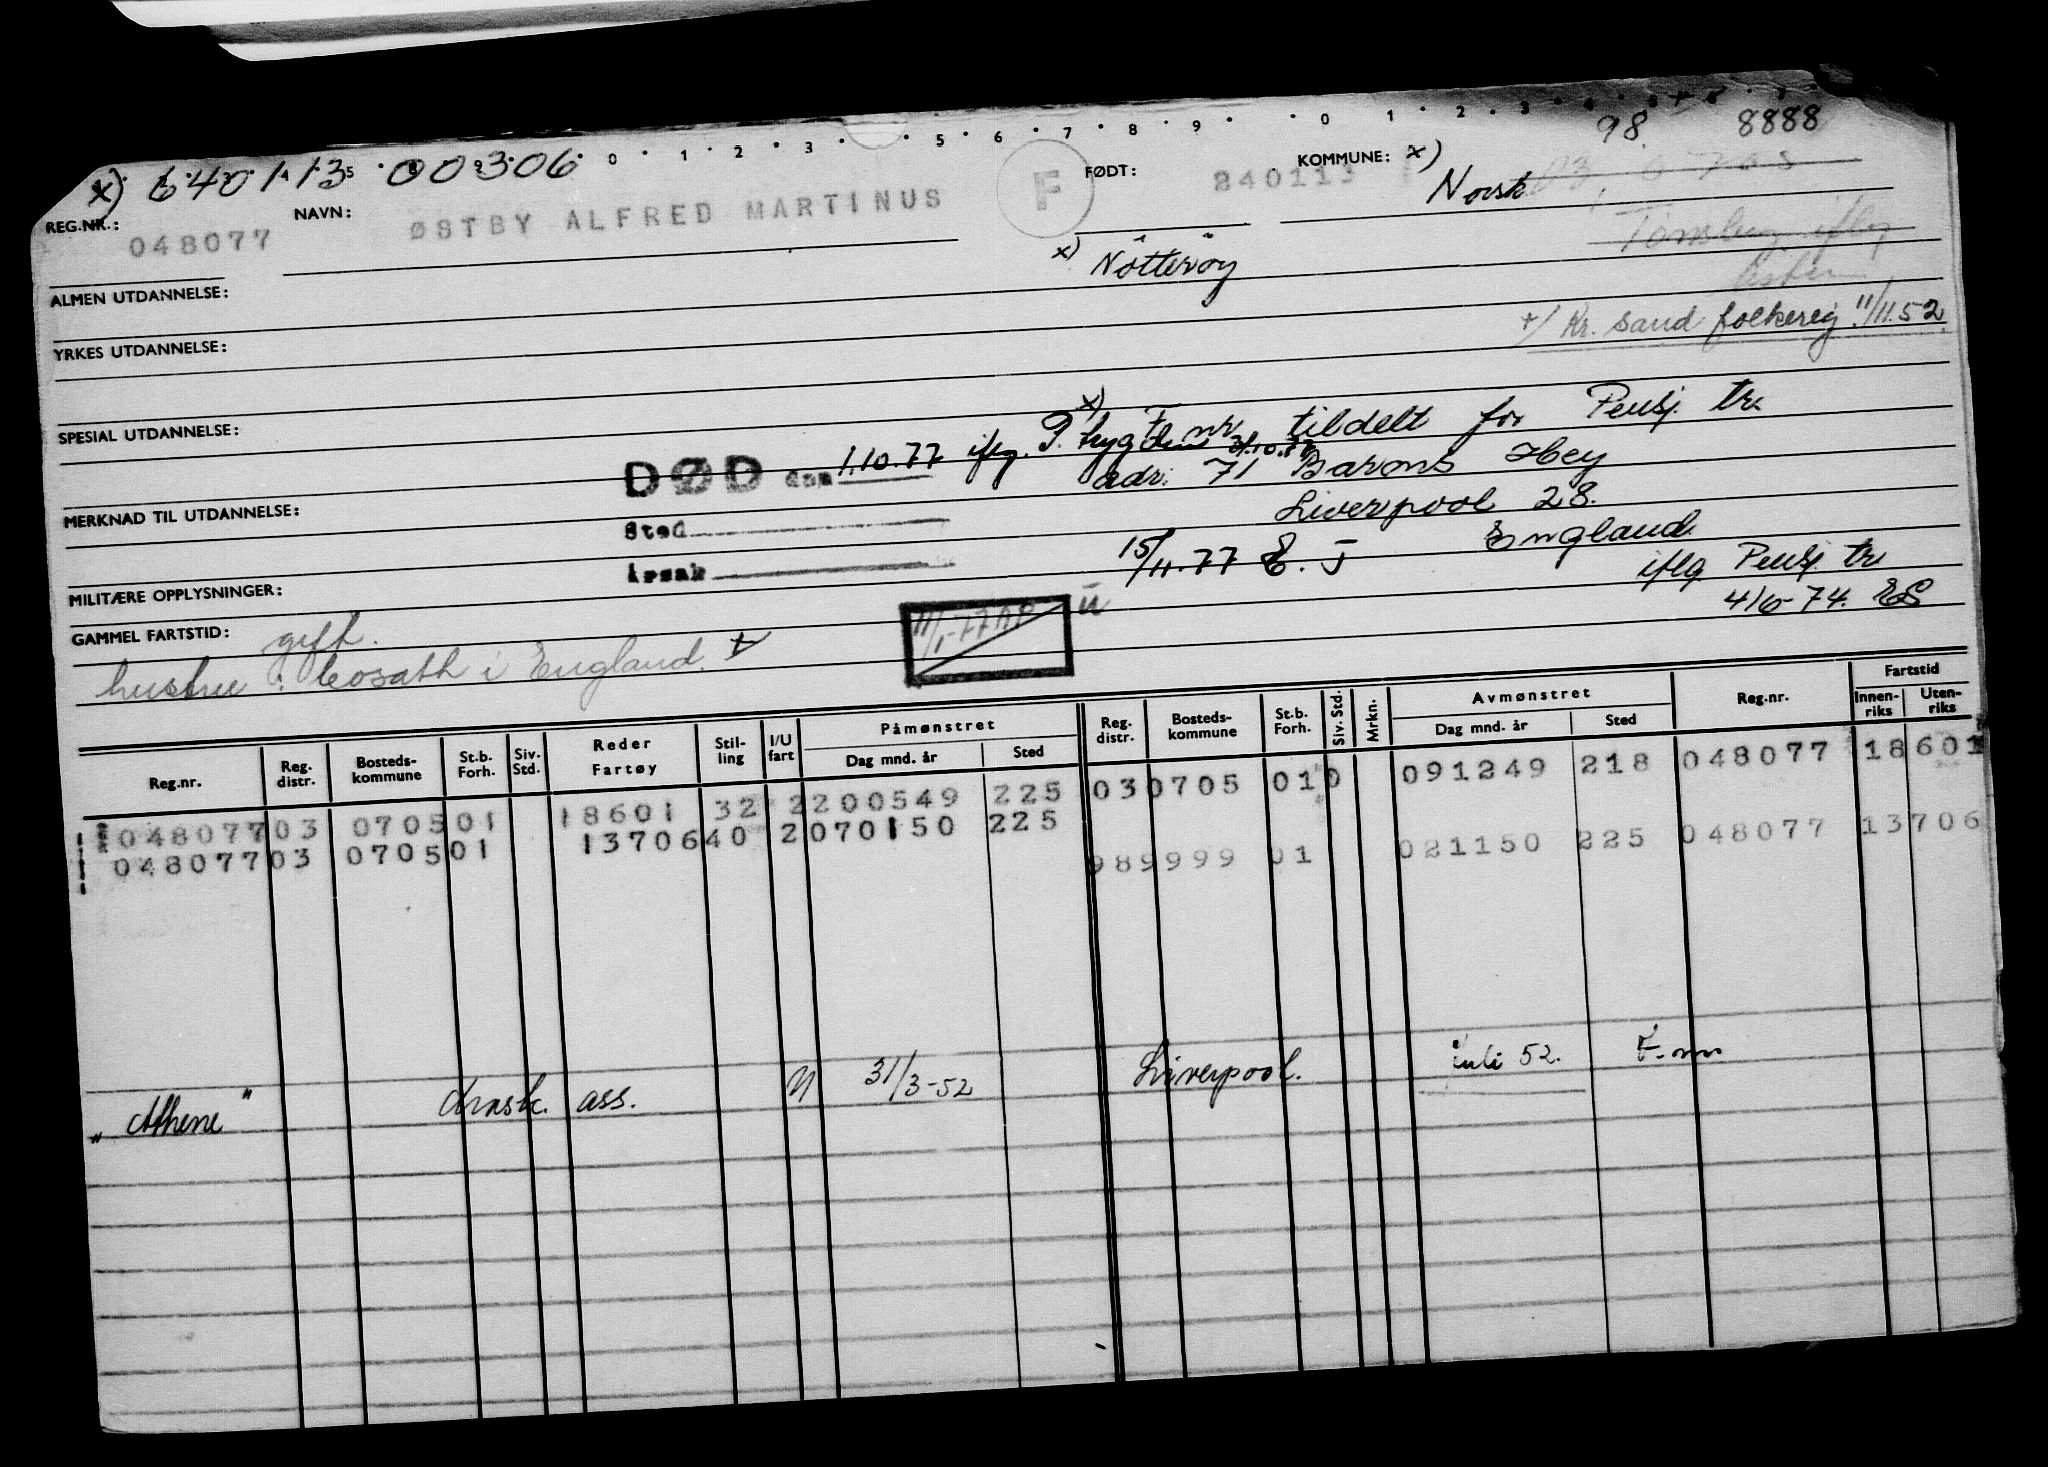 98 8888
x) 640113 00306
0 1 2 3 5 6 7 8 9 0 1 2 3
REG.NR.: 048077 NAVN: ØSTBY ALFRED MARTINUS F FØDT: 240113 KOMMUNE: x) Norsk
x) Nötteröy
Tønsberg iflg
ALMEN UTDANNELSE:
+/ Kr. sand folkereg. 11/11.52.
YRKES UTDANNELSE:
SPESIAL UTDANNELSE:
x) F nr tildelt for Pensj. tr.
DØD den 1.10.77 iflg. P. trygden 31.10.77
adr. 71 Barons Hey
Liverpool 28.
MERKNAD TIL UTDANNELSE:
Sted
England
Årsak
15/11.77 E. J
iflg Pensj. tr
4/6-74. ES
MILITÆRE OPPLYSNINGER:
GAMMEL FARTSTID: gift.
hustru : bosatt i England. +
11/1-77 AP ü
Reg.nr. Reg. distr. Bosteds- kommune St.b. Forh. Siv. Std. Reder Fartøy Stil- ling I/U fart Påmønstret Dag mnd. år Sted Reg. distr. Bosteds- kommune St.b. Forh. Siv. Std. Mrkn. Avmønstret Dag mnd. år Sted Reg.nr. Fartstid Innen- riks Uten- riks
048077 03 0705 01 18601 32 2 200549 225 03 0705 01 0 091249 218 048077 18601
048077 03 0705 01 13706 40 2 070150 225 98 9999 01 021150 225 048077 13706
"Athene" dansk. ass. U 31/3-52 Liverpool. juli 52.